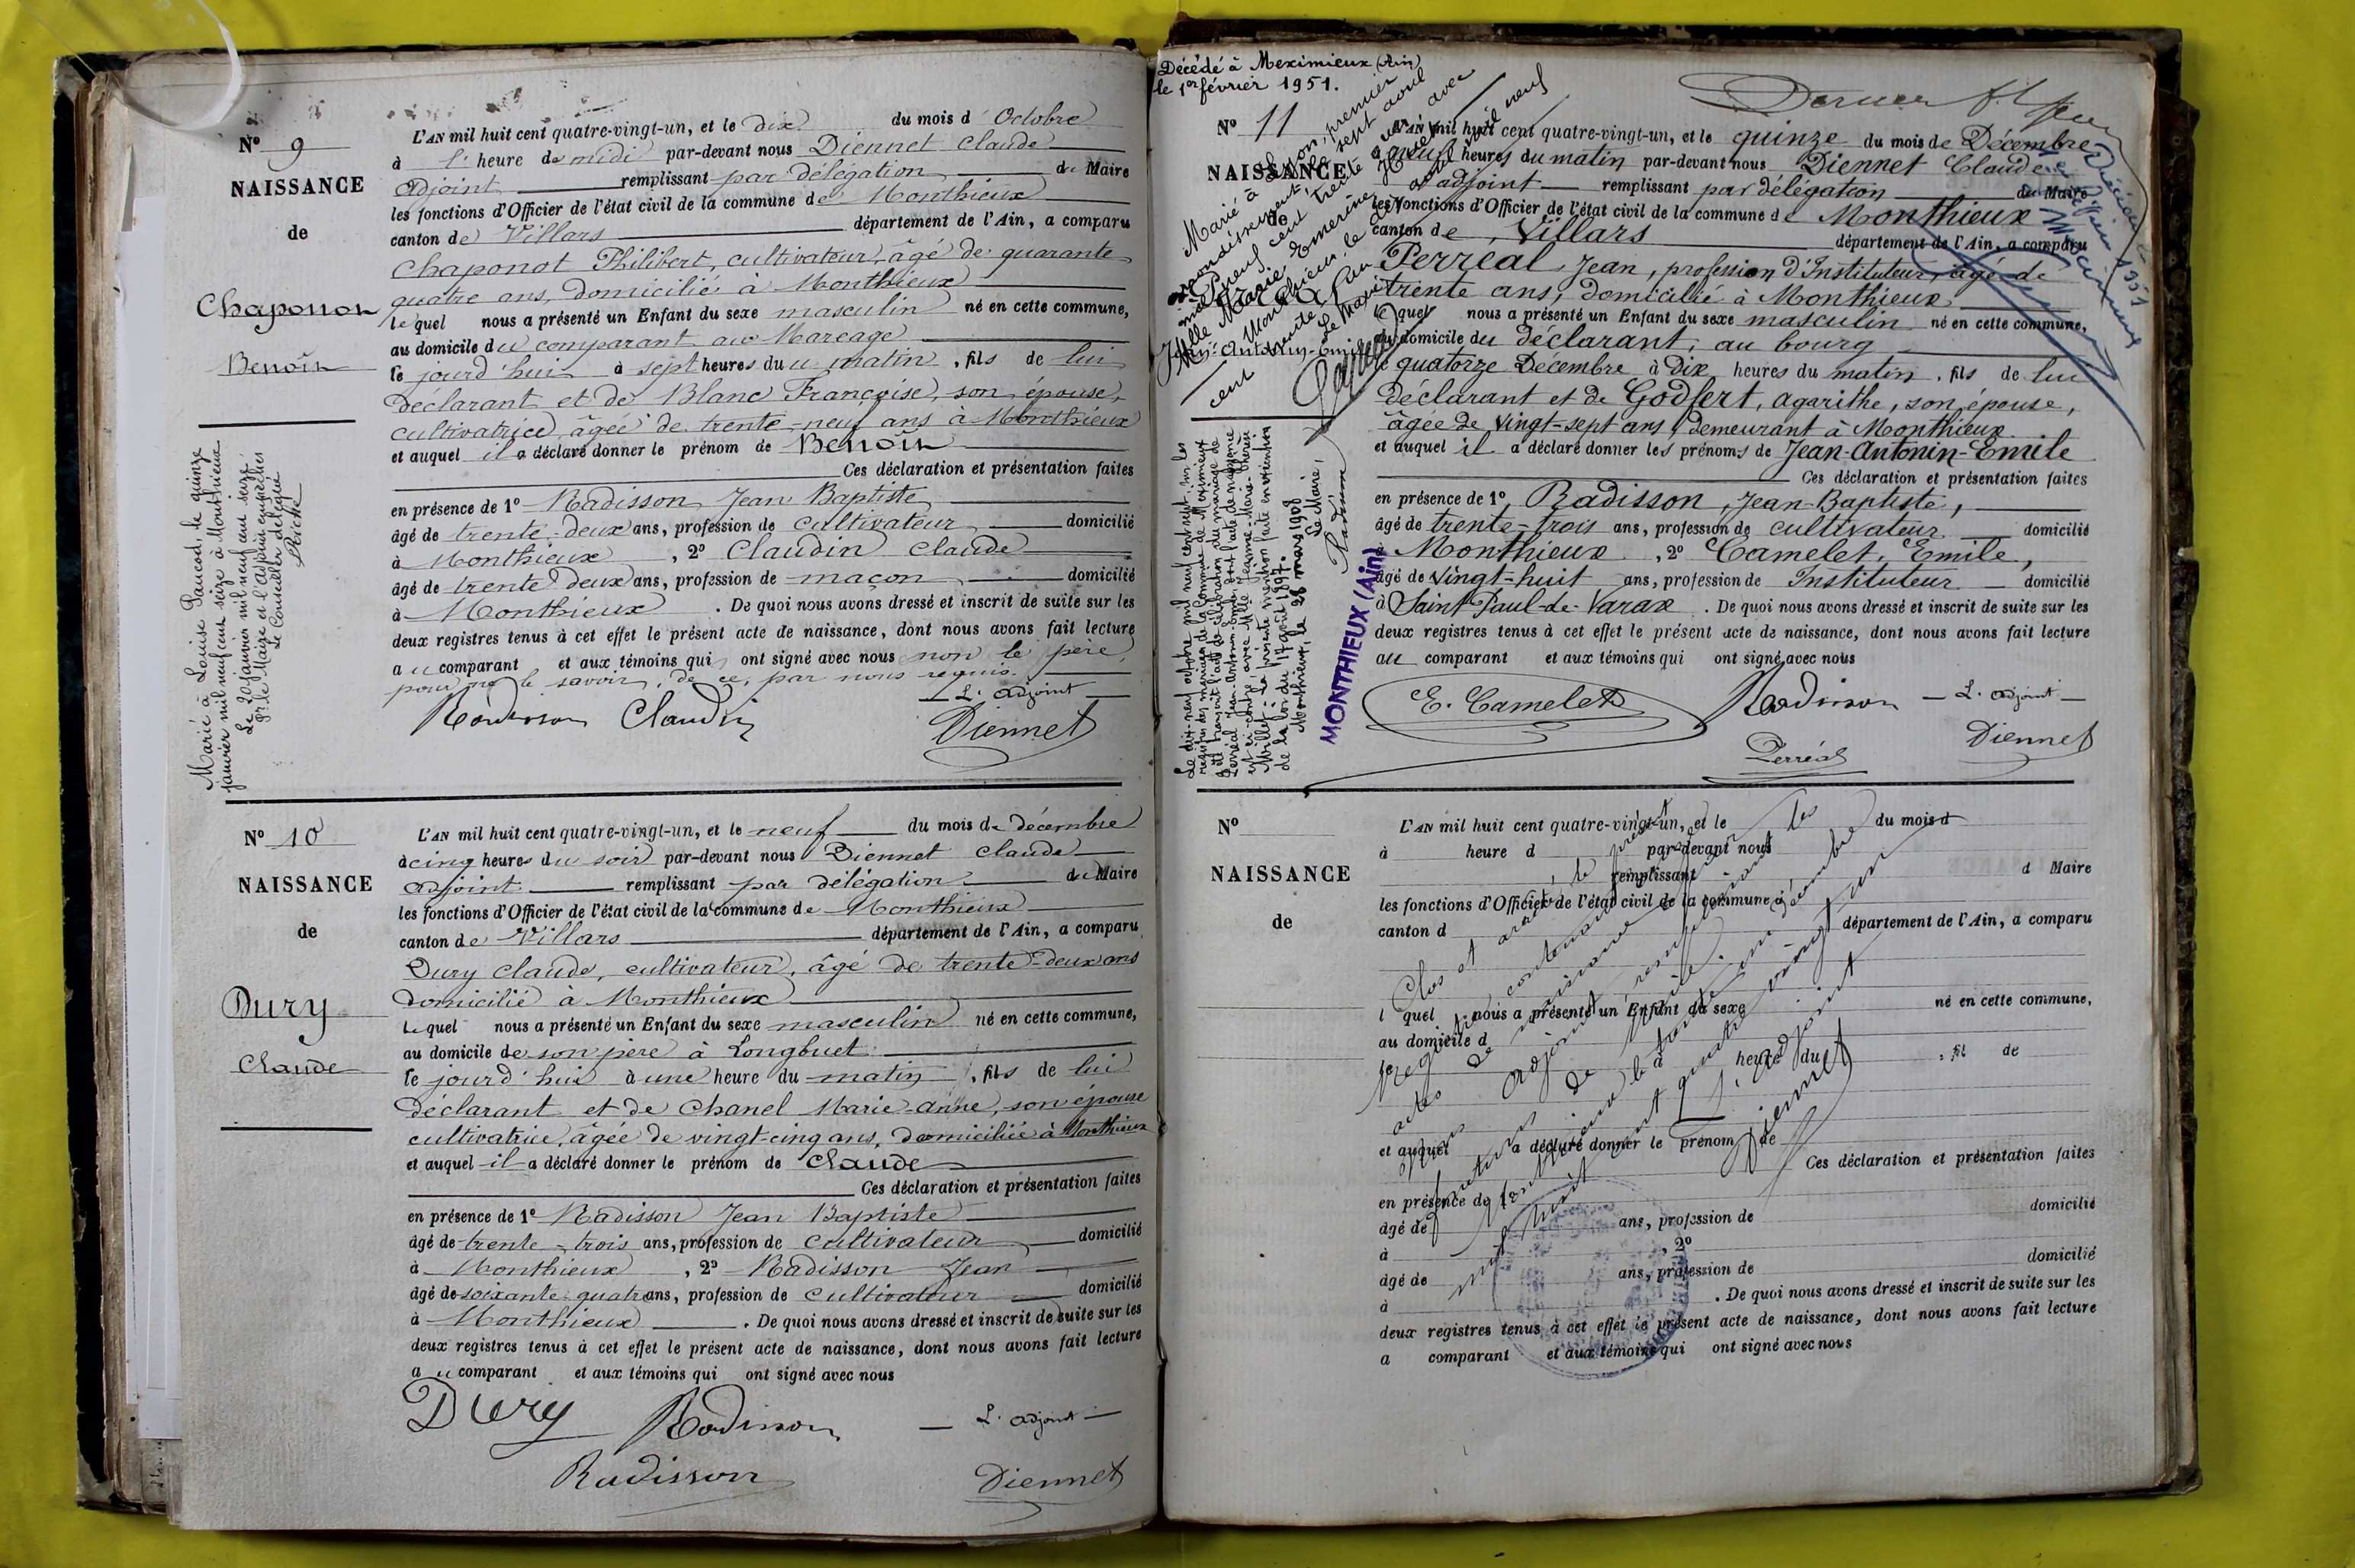 N° 9
NAISSANCE
de
Chaponon
Benoin
L'AN mil huit cent quatre-vingt-un, et le dix du mois d' Octobre
à l' heure de midi par-devant nous Diennet Claude
adjoint remplissant par délégation du Maire
les fonctions d'Officier de l'état civil de la commune de Monthieux
canton de Villars département de l'Ain, a comparu
Chaponot Philibert, cultivateur, âgé de quarante
quatre ans, domicilié à Monthieux
le quel nous a présenté un Enfant du sexe masculin né en cette commune,
au domicile du comparant au Marcage
le jourd'hui à sept heures du matin, fils de lui
déclarant et de Blanc Françoise, son épouse,
cultivatrice, âgée de trente-neuf ans à Monthieux
et auquel il a déclaré donner le prénom de Benoin
Ces déclaration et présentation faites
en présence de 1° Radisson Jean Baptiste
âgé de trente-deux ans, profession de cultivateur domicilié
à Monthieux, 2° Claudin Claude
âgé de trente deux ans, profession de maçon domicilié
à Monthieux. De quoi nous avons dressé et inscrit de suite sur les
deux registres tenus à cet effet le présent acte de naissance, dont nous avons fait lecture
au comparant et aux témoins qui ont signé avec nous non le père,
pour ne le savoir, de ce, par nous requis.
L'adjoint
Radisson Claudin Diennet
Marié à Louise Paucod, le quinze
janvier mil neuf cent seize à Monthieux
Le 20 janvier mil neuf cent seize
Pr le Maire et l'Adjoint empêchés
Le Conseiller délégué
N° 10
NAISSANCE
de
Dury
Claude
L'AN mil huit cent quatre-vingt-un, et le neuf du mois de décembre
à cinq heures du soir par-devant nous Diennet Claude
adjoint remplissant par délégation du Maire
les fonctions d'Officier de l'état civil de la commune de Monthieux
canton de Villars département de l'Ain, a comparu
Dury Claude, cultivateur, âgé de trente-deux ans
domicilié à Monthieux
le quel nous a présenté un Enfant du sexe masculin né en cette commune,
au domicile de son père à Longbuet
le jourd'hui à une heure du matin, fils de lui
déclarant et de Chanel Marie-anne, son épouse
cultivatrice, âgée de vingt-cinq ans, domiciliée à Monthieux
et auquel il a déclaré donner le prénom de Claude
Ces déclaration et présentation faites
en présence de 1° Radisson Jean Baptiste
âgé de trente-trois ans, profession de cultivateur domicilié
à Monthieux, 2° Radisson Jean
âgé de soixante quatre ans, profession de cultivateur domicilié
à Monthieux. De quoi nous avons dressé et inscrit de suite sur les
deux registres tenus à cet effet le présent acte de naissance, dont nous avons fait lecture
au comparant et aux témoins qui ont signé avec nous
Dury Radisson L'adjoint
Radisson Diennet
Décédé à Meximieux (Ain)
le 1er février 1951.
N° 11
NAISSANCE
de
Marié à Lyon, premier
arrondissement, le sept avril
mil neuf cent trente avec
L'AN mil huit cent quatre-vingt-un, et le quinze du mois de Décembre
à neuf heures du matin par-devant nous Diennet Claude
adjoint remplissant par délégation du Maire
les fonctions d'Officier de l'état civil de la commune de Monthieux
canton de Villars département de l'Ain, a comparu
Perréal, Jean, profession d'Instituteur, âgé de
trente ans, domicilié à Monthieux
le quel nous a présenté un Enfant du sexe masculin né en cette commune,
au domicile du déclarant, au bourg
le quatorze Décembre à Dix heures du matin, fils de lui
déclarant et de Godfert, agarithe, son épouse,
âgée de vingt-sept ans, demeurant à Monthieux
et auquel il a déclaré donner les prénoms de Jean-Antonin-Emile
Ces déclaration et présentation faites
en présence de 1° Radisson, Jean-Baptiste,
âgé de trente-trois ans, profession de cultivateur domicilié
à Monthieux, 2° Camelet, Emile,
âgé de vingt-huit ans, profession de Instituteur domicilié
à Saint-Paul-de-Varax. De quoi nous avons dressé et inscrit de suite sur les
deux registres tenus à cet effet le présent acte de naissance, dont nous avons fait lecture
au comparant et aux témoins qui ont signé avec nous
E. Camelet Radisson L'adjoint
Perréal Diennet
Monthieux, le 28 mars 1908
Le Maire,
Radisson
MONTHIEUX (Ain)
N°
NAISSANCE
de
L'AN mil huit cent quatre-vingt-un, et le du mois d
à heure d par-devant nous
remplissant d Maire
les fonctions d'Officier de l'état civil de la commune d
canton d département de l'Ain, a comparu
l quel nous a présenté un Enfant du sexe né en cette commune,
au domicile d
le à heure du , fil de
et auquel a déclaré donner le prénom de
Ces déclaration et présentation faites
en présence de 1°
âgé de ans, profession de domicilié
à , 2°
âgé de ans, profession de domicilié
à . De quoi nous avons dressé et inscrit de suite sur les
deux registres tenus à cet effet le présent acte de naissance, dont nous avons fait lecture
a comparant et aux témoins qui ont signé avec nous
Clos et arrêté, le présent
registre contenant les
actes de naissance
L'adjoint
Diennet